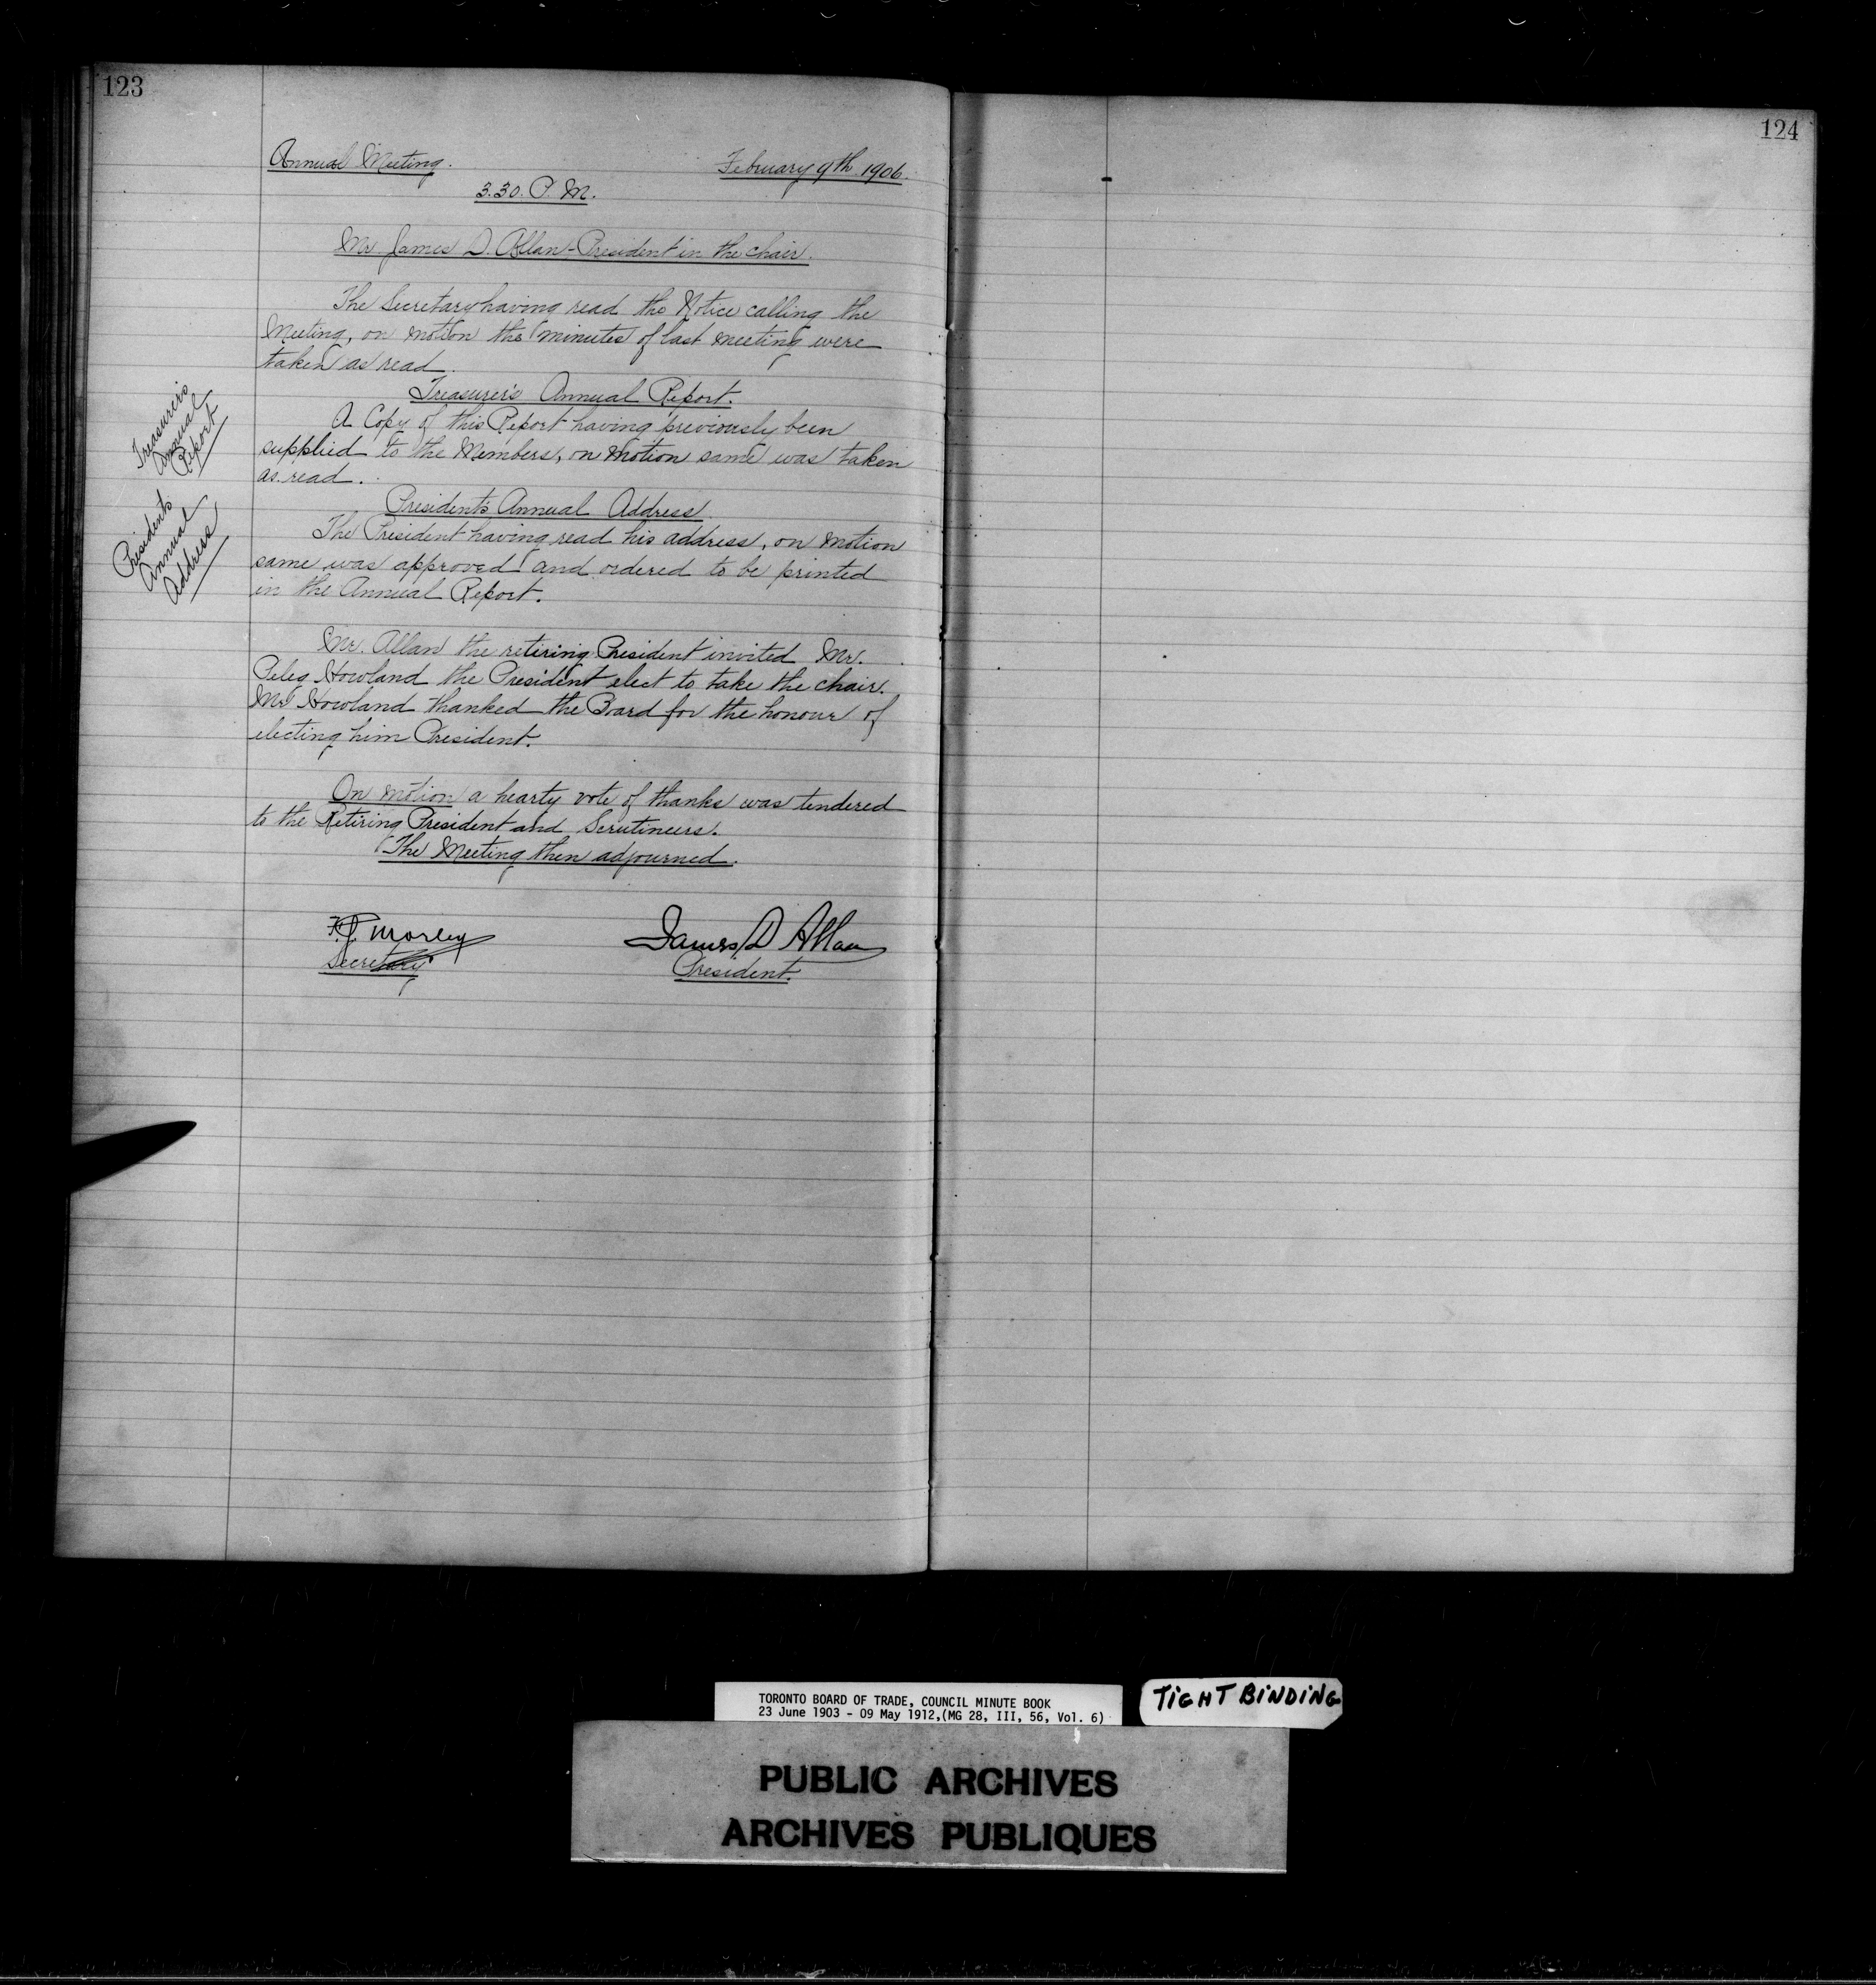 123
Annual Meeting.
February 9th. 1906.
3.30. P. M.
Mr. James D. Allan - President in the chair.
The Secretary having read the Notice calling the
Meeting, on motion the minutes of last meeting were
taken as read.
Treasurer's
Annual
Report
Treasurer's Annual Report.
A Copy of this Report having previously been
supplied to the Members, on motion same was taken
as read.
President's
Annual
Address
President's Annual Address
The President having read his address, on motion
same was approved and ordered to be printed
in the Annual Report.
Mr. Allan the retiring President invited Mr.
Peleg Howland the President elect to take the chair.
Mr Howland thanked the Board for the honour of
electing him President.
On motion a hearty vote of thanks was tendered
to the Retiring President and Scrutineers.
The Meeting then adjourned.
F.G. Morley
Secretary
James D Allan
President.
124
TORONTO BOARD OF TRADE, COUNCIL MINUTE BOOK
23 June 1903 - 09 May 1912,(MG 28, III, 56, Vol. 6)
TIGHT BINDING
PUBLIC ARCHIVES
ARCHIVES PUBLIQUES